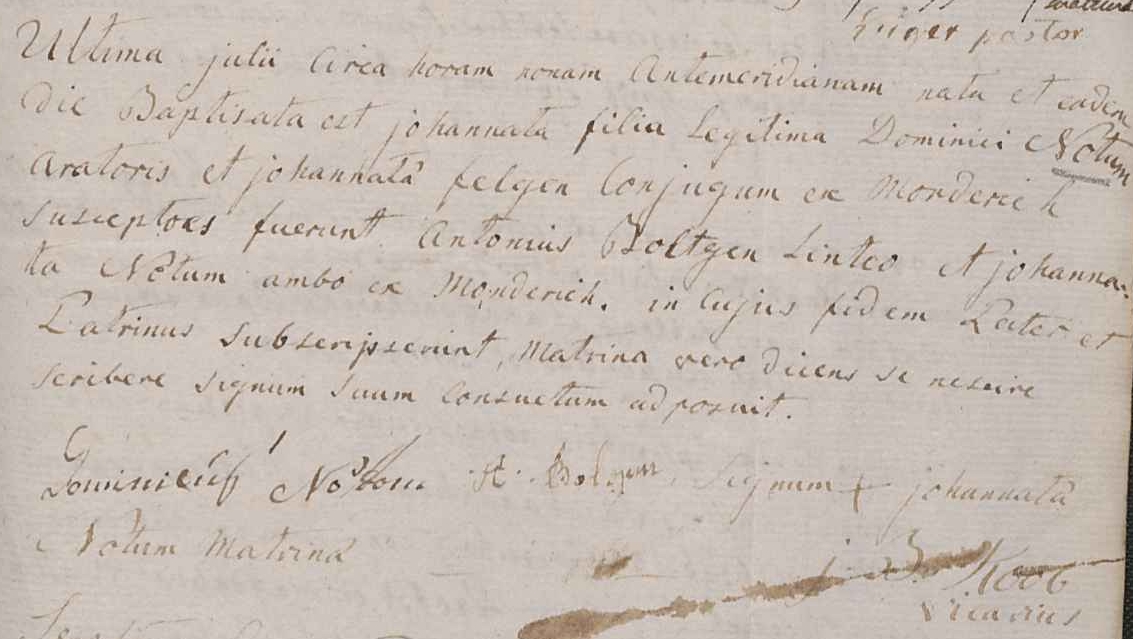 pastor
Ultima julii circa horam nonam antemeridianam nata et eadem
die Baptisata est johannata filia Legitima Dominici Notum
aratoris et johannatâ felgen Conjugum ex Monderich
susceptores fuerunt Antonius Boltgen Linteo et johanna-
ta Nôtum ambo ex Monderich. in Cujus fidem Pater et
Patrinus subscripserunt, Matrina vero dicens se nescire
scribere signum suum Consuetum adposuit.
Dominicus Signum + johannatâ
Nôtum Matrina
j. B. Koob
Vicarius